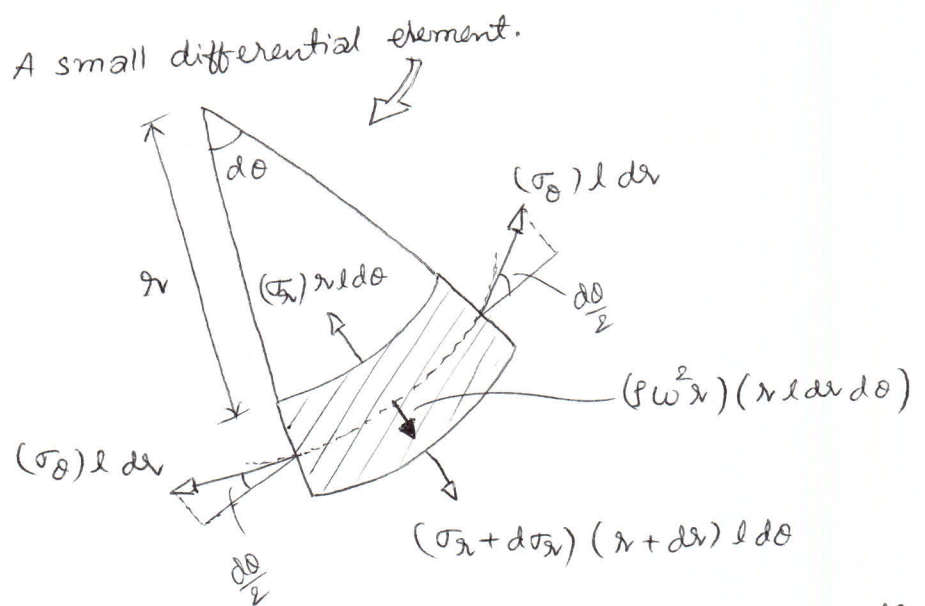 A small differential element.
dθ
(σ_θ) l dr
r
(σ_r) r l dθ
dθ/2
(ρω²r)(r l dr dθ)
(σ_θ) l dr
(σ_r + dσ_r)(r + dr) l dθ
dθ/2